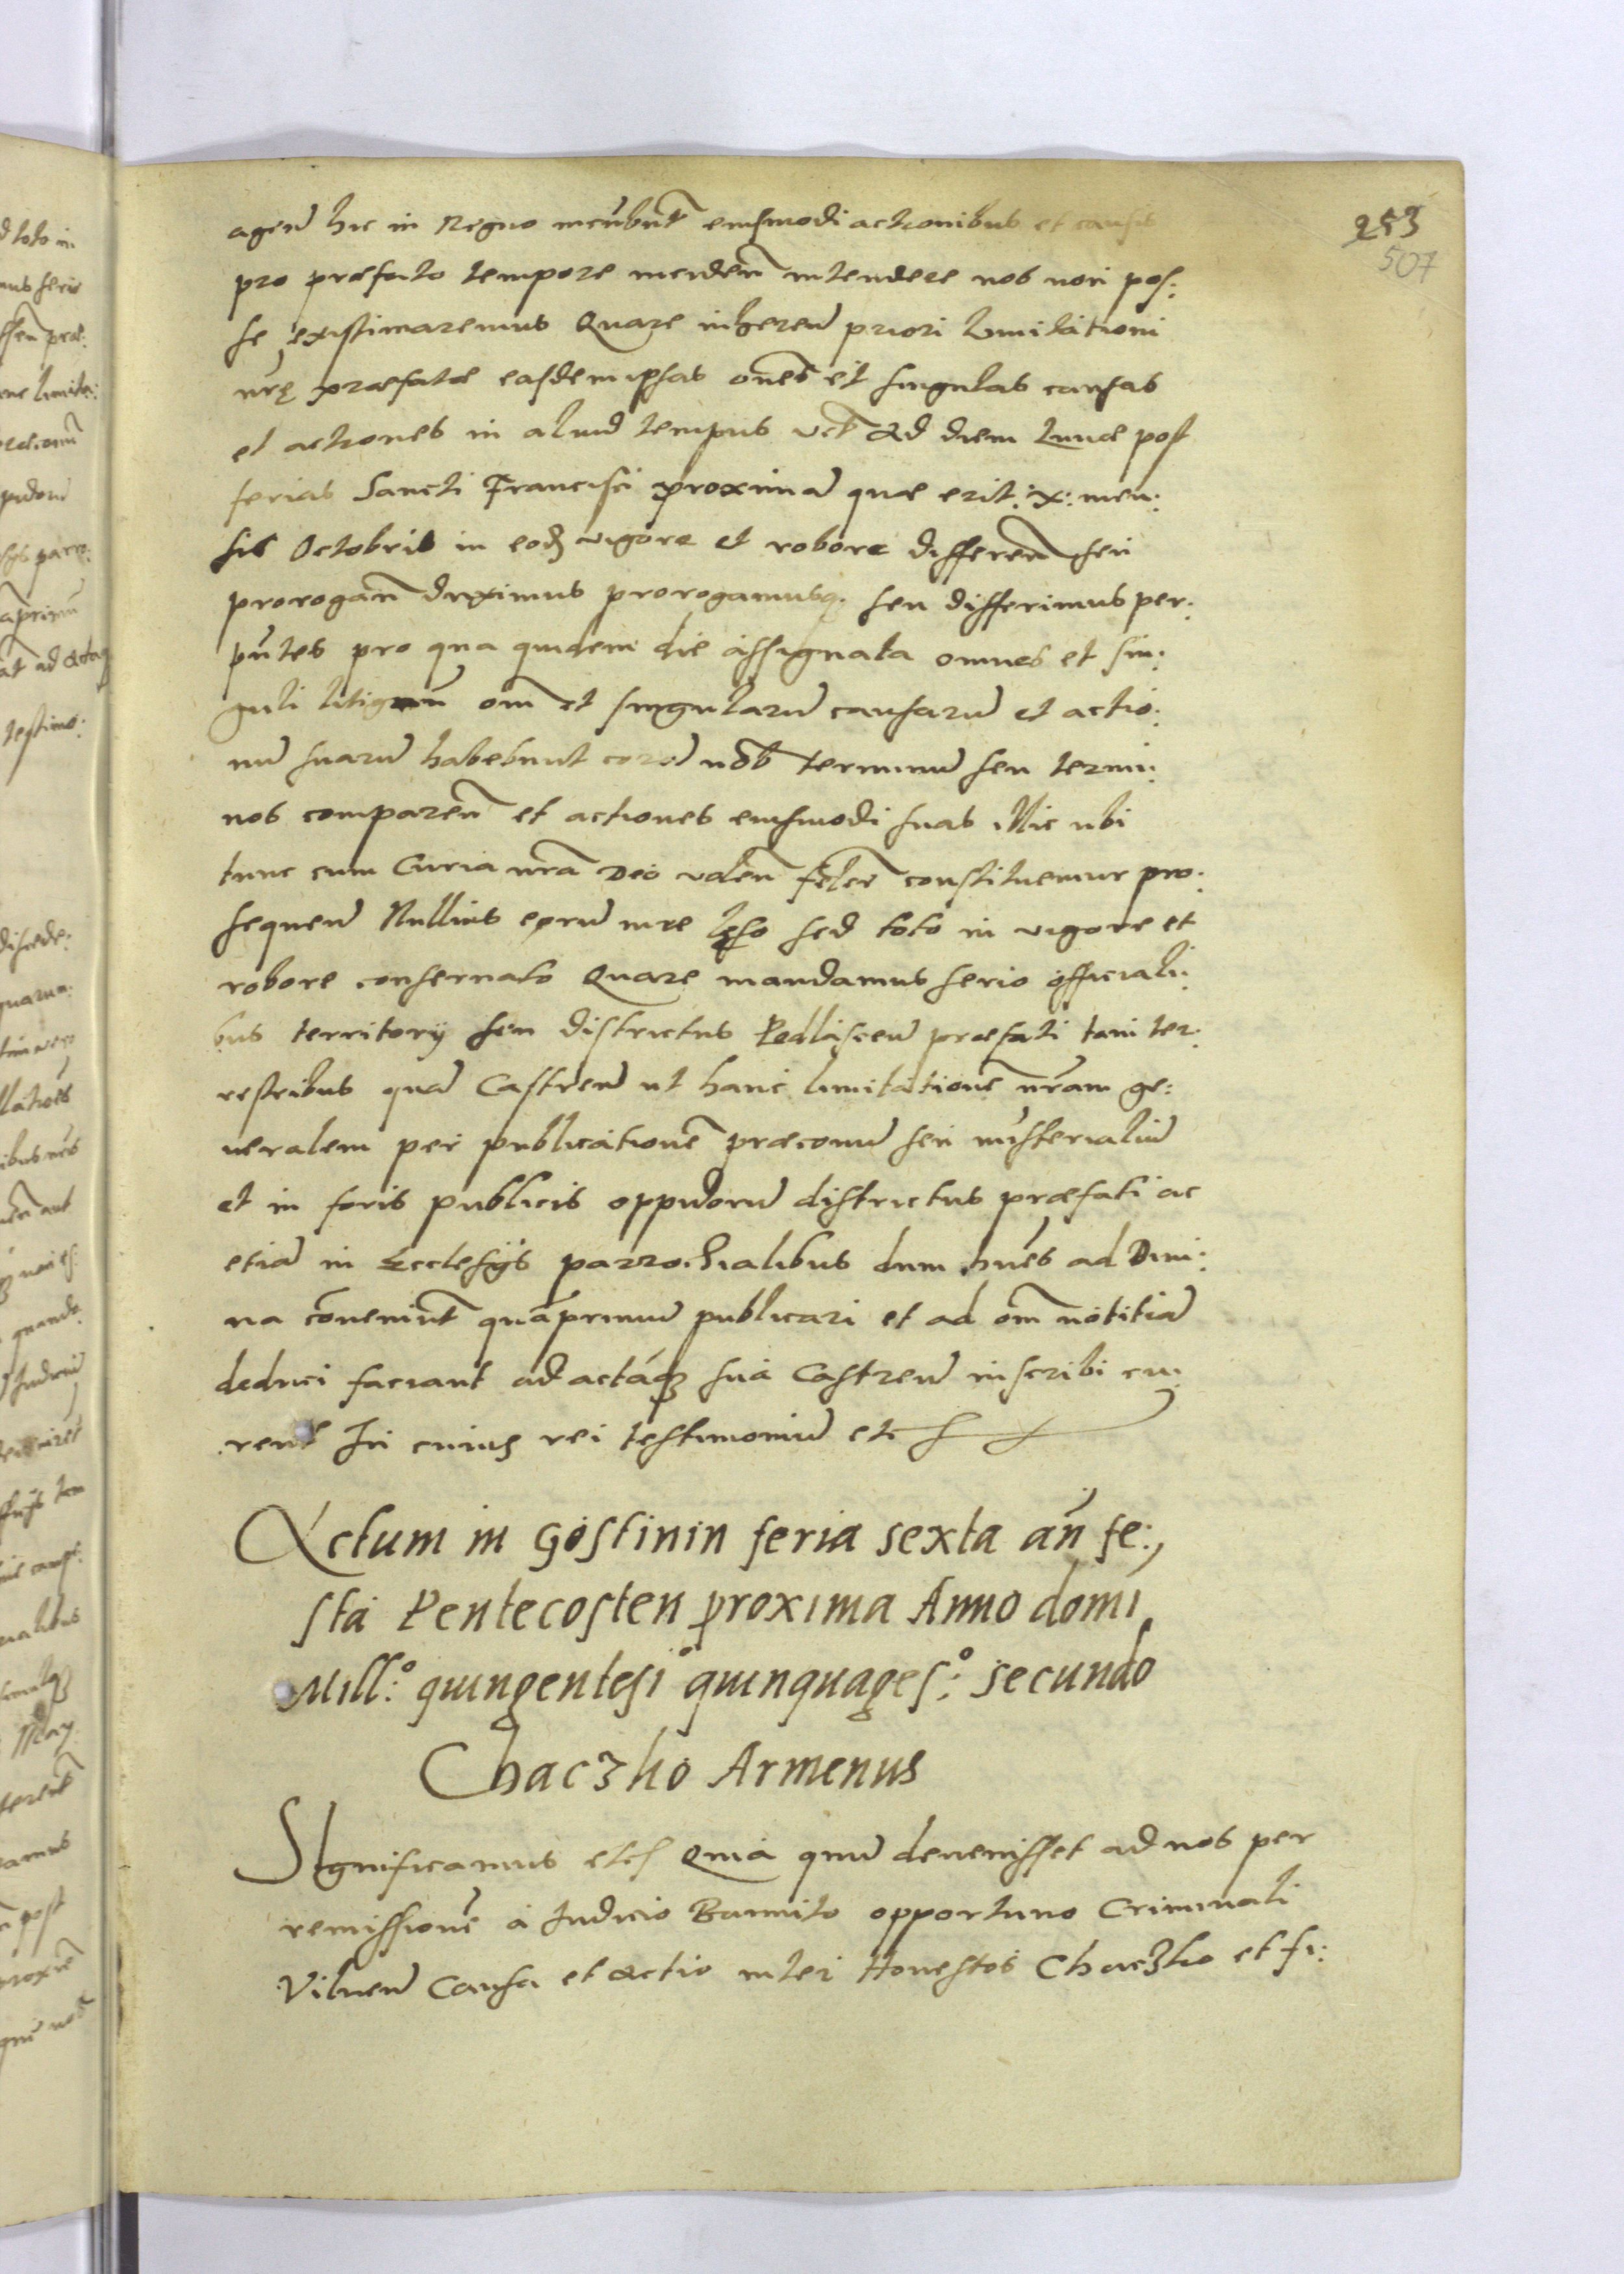 253
507
agen̄ hic in Regno incūbūt eiusmodi actionibus et causis
pro præfato tempore incidēn intendere nos non pos:
se existimaremus Quare inherēn priori Limitationi
nr̄ę præfatæ easdem ipsas oēs et singulas causas
et actiones in aliud tempus vt̄ Ad diem Lunæ post
ferias Sancti Francisci proximā quæ erit :x: men:
sis Octobris in eodȝ vigore et robore differen̄ seu
prorogan̄ duximus prorogamusq; seu differimus per:
pn̄tes pro qua quidem die assignata omnes et sin:
guli litigān om̄ et singularū causarū et actio:
nū suarū habebunt corā nob̄ terminū seu termi:
nos comparen̄ et actiones eiusmodi suas illic ubi
tunc cum Curia nr̄a Deo volēn fel̄r constituemur pro:
sequen̄ Nullius eorū iure lęso sed toto in vigore et
robore conseruato Quare mandamus serio officiali:
bus territorij seu districtus Podlascen̄ præfati tam ter:
restribus quā Castren̄ ut hanc limitationē nr̄am ge:
neralem per publicationē præconū seu mīsterialiū
et in foris publicis oppidorū districtus præfati ac
etiā in Ecclesijs parrochialibus dum hoīes ad Diui:
na conueniūt quāprimū publicari et ad om̄ notitiā
deduci faciant ad actaqȝ sua Castren̄ inscribi cu:
rent In cuius rei testimoniū etc
Actum in Gostinin feria sexta an̄ fe:,
sta Pentecosten proxima Anno domi
Mill:º quingentesiº quinquages:º secundo
Chaczko Armenus
Significamus etc Quia quū deuenisset ad nos per
remissionē a Iudicio Bannito opportuno Criminali
Vilnen̄ Causa et actio inter Honestos Chaczko et fi: